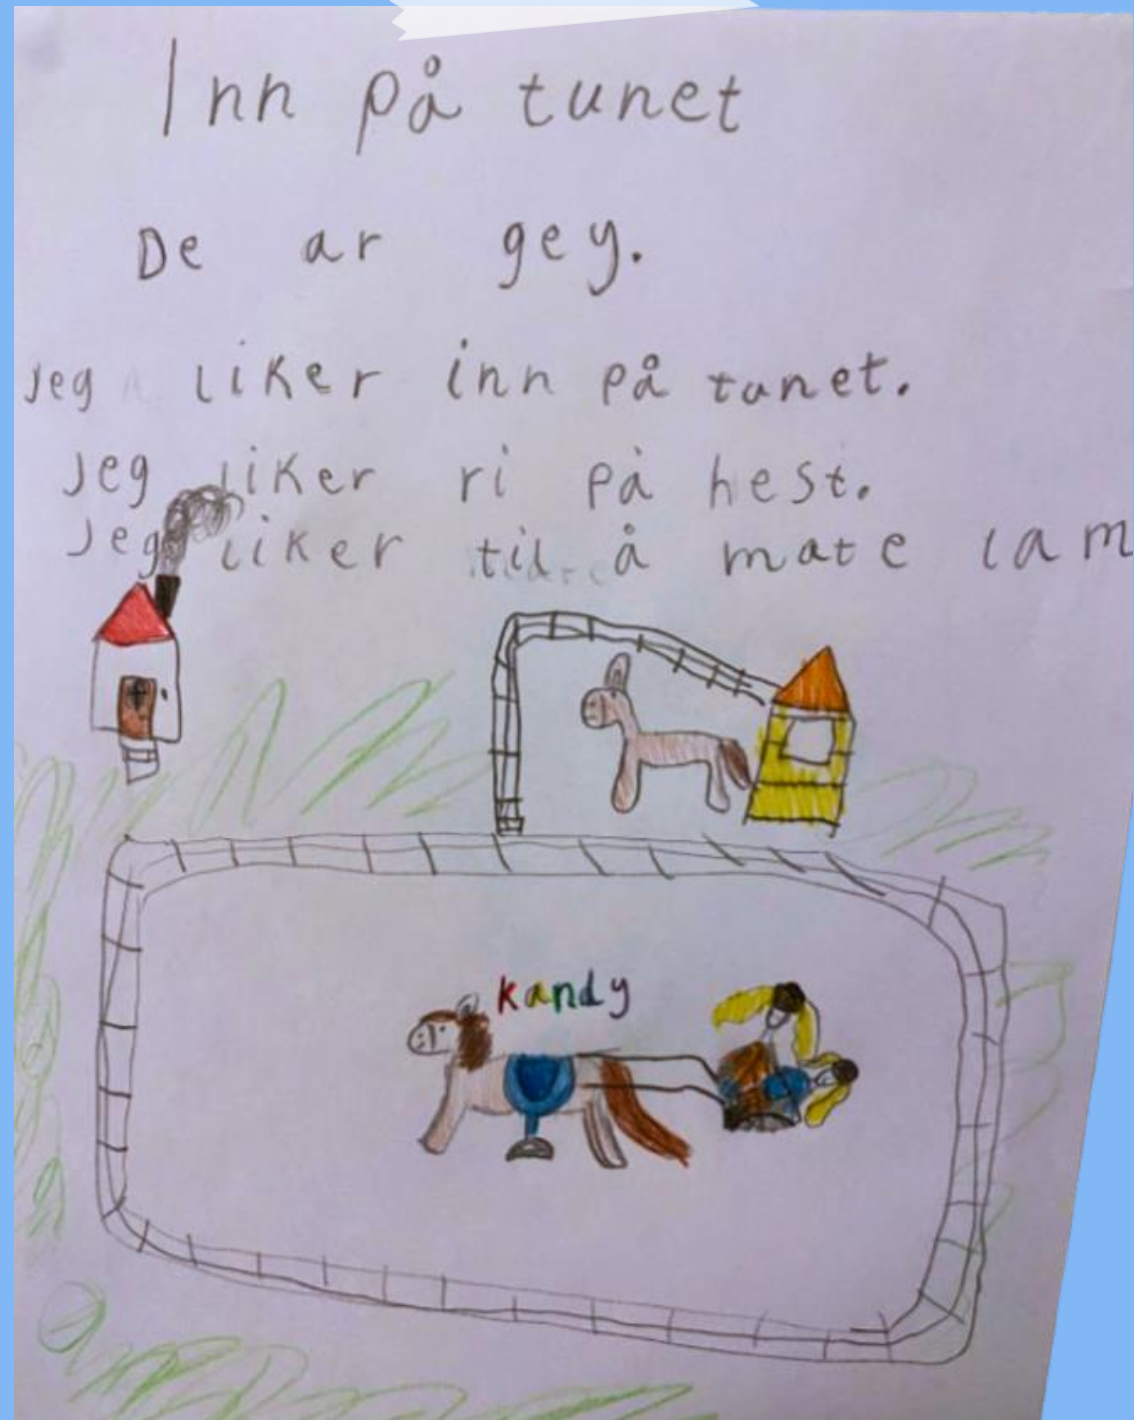 Inn på tunet
De ar gey.
Jeg liker inn på tunet.
Jeg liker ri på hest.
Jeg liker til å mate lam
kandy